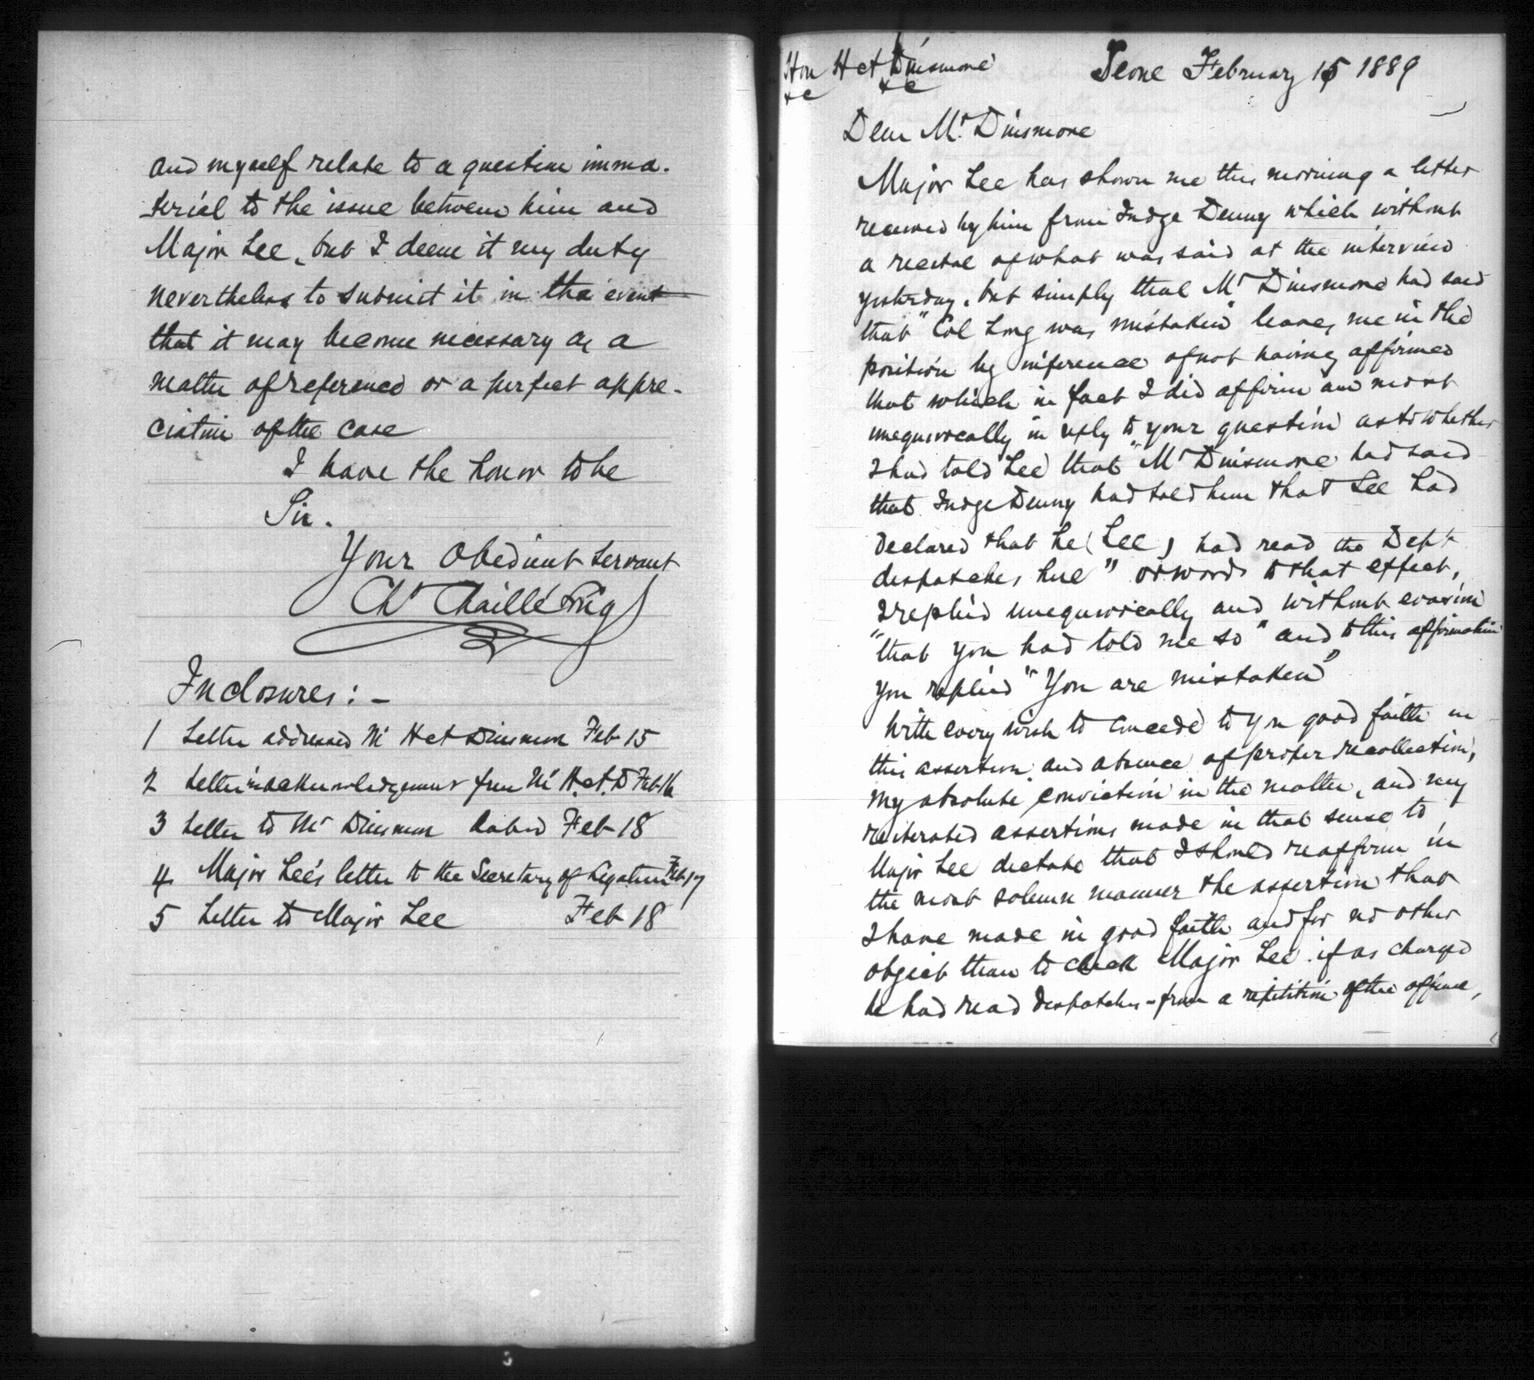 and myself relate to a question imma-
terial to the issue between him and
Major Lee, but I deem it my duty
nevertheless to submit it in the event
that it may become necessary as a
matter of reference or a perfect appre-
ciation of the case
I have the honor to be
Sir.
Your Obedient Servant
Ch Chaillé Long
Inclosures: -
1 Letter addressed Mr Hct Dinsmore Feb 15
2 Letter in acknowledgement from Mr H.ct.D Feb 16
3 Letter to Mr Dinsmore dated Feb 18
4 Major Lee's letter to the Secretary of Legation Feb 17
5 Letter to Major Lee Feb 18
Hon Hct Dinsmore
&c &c
Seoul February 15 1889
Dear Mr. Dinsmore
Major Lee has shown me this morning a letter
received by him from Judge Denny which without
a recital of what was said at the interview
yesterday, but simply that Mr Dinsmore had said
that "Col Long was mistaken" leaves me in the
position by inference of not having affirmed
that which in fact I did affirm and most
unequivocally in reply to your question as to whether
I had told Lee that "Mr Dinsmore had said
that Judge Denny had told him that Lee had
declared that he (Lee) had read the Dept
despatches here" or words to that effect,
I replied unequivocally and without evasion
"that you had told me so" and to this affirmation
you replied "You are mistaken"
With every wish to concede to you good faith in
this assertion and absence of proper recollection,
my absolute conviction in the matter, and my
reiterated assertions made in that sense to
Major Lee dictate that I should reaffirm in
the most solemn manner the assertion that
I have made in good faith and for no other
object than to check Major Lee if as charged
he had read despatches - from a repetition of the offense,